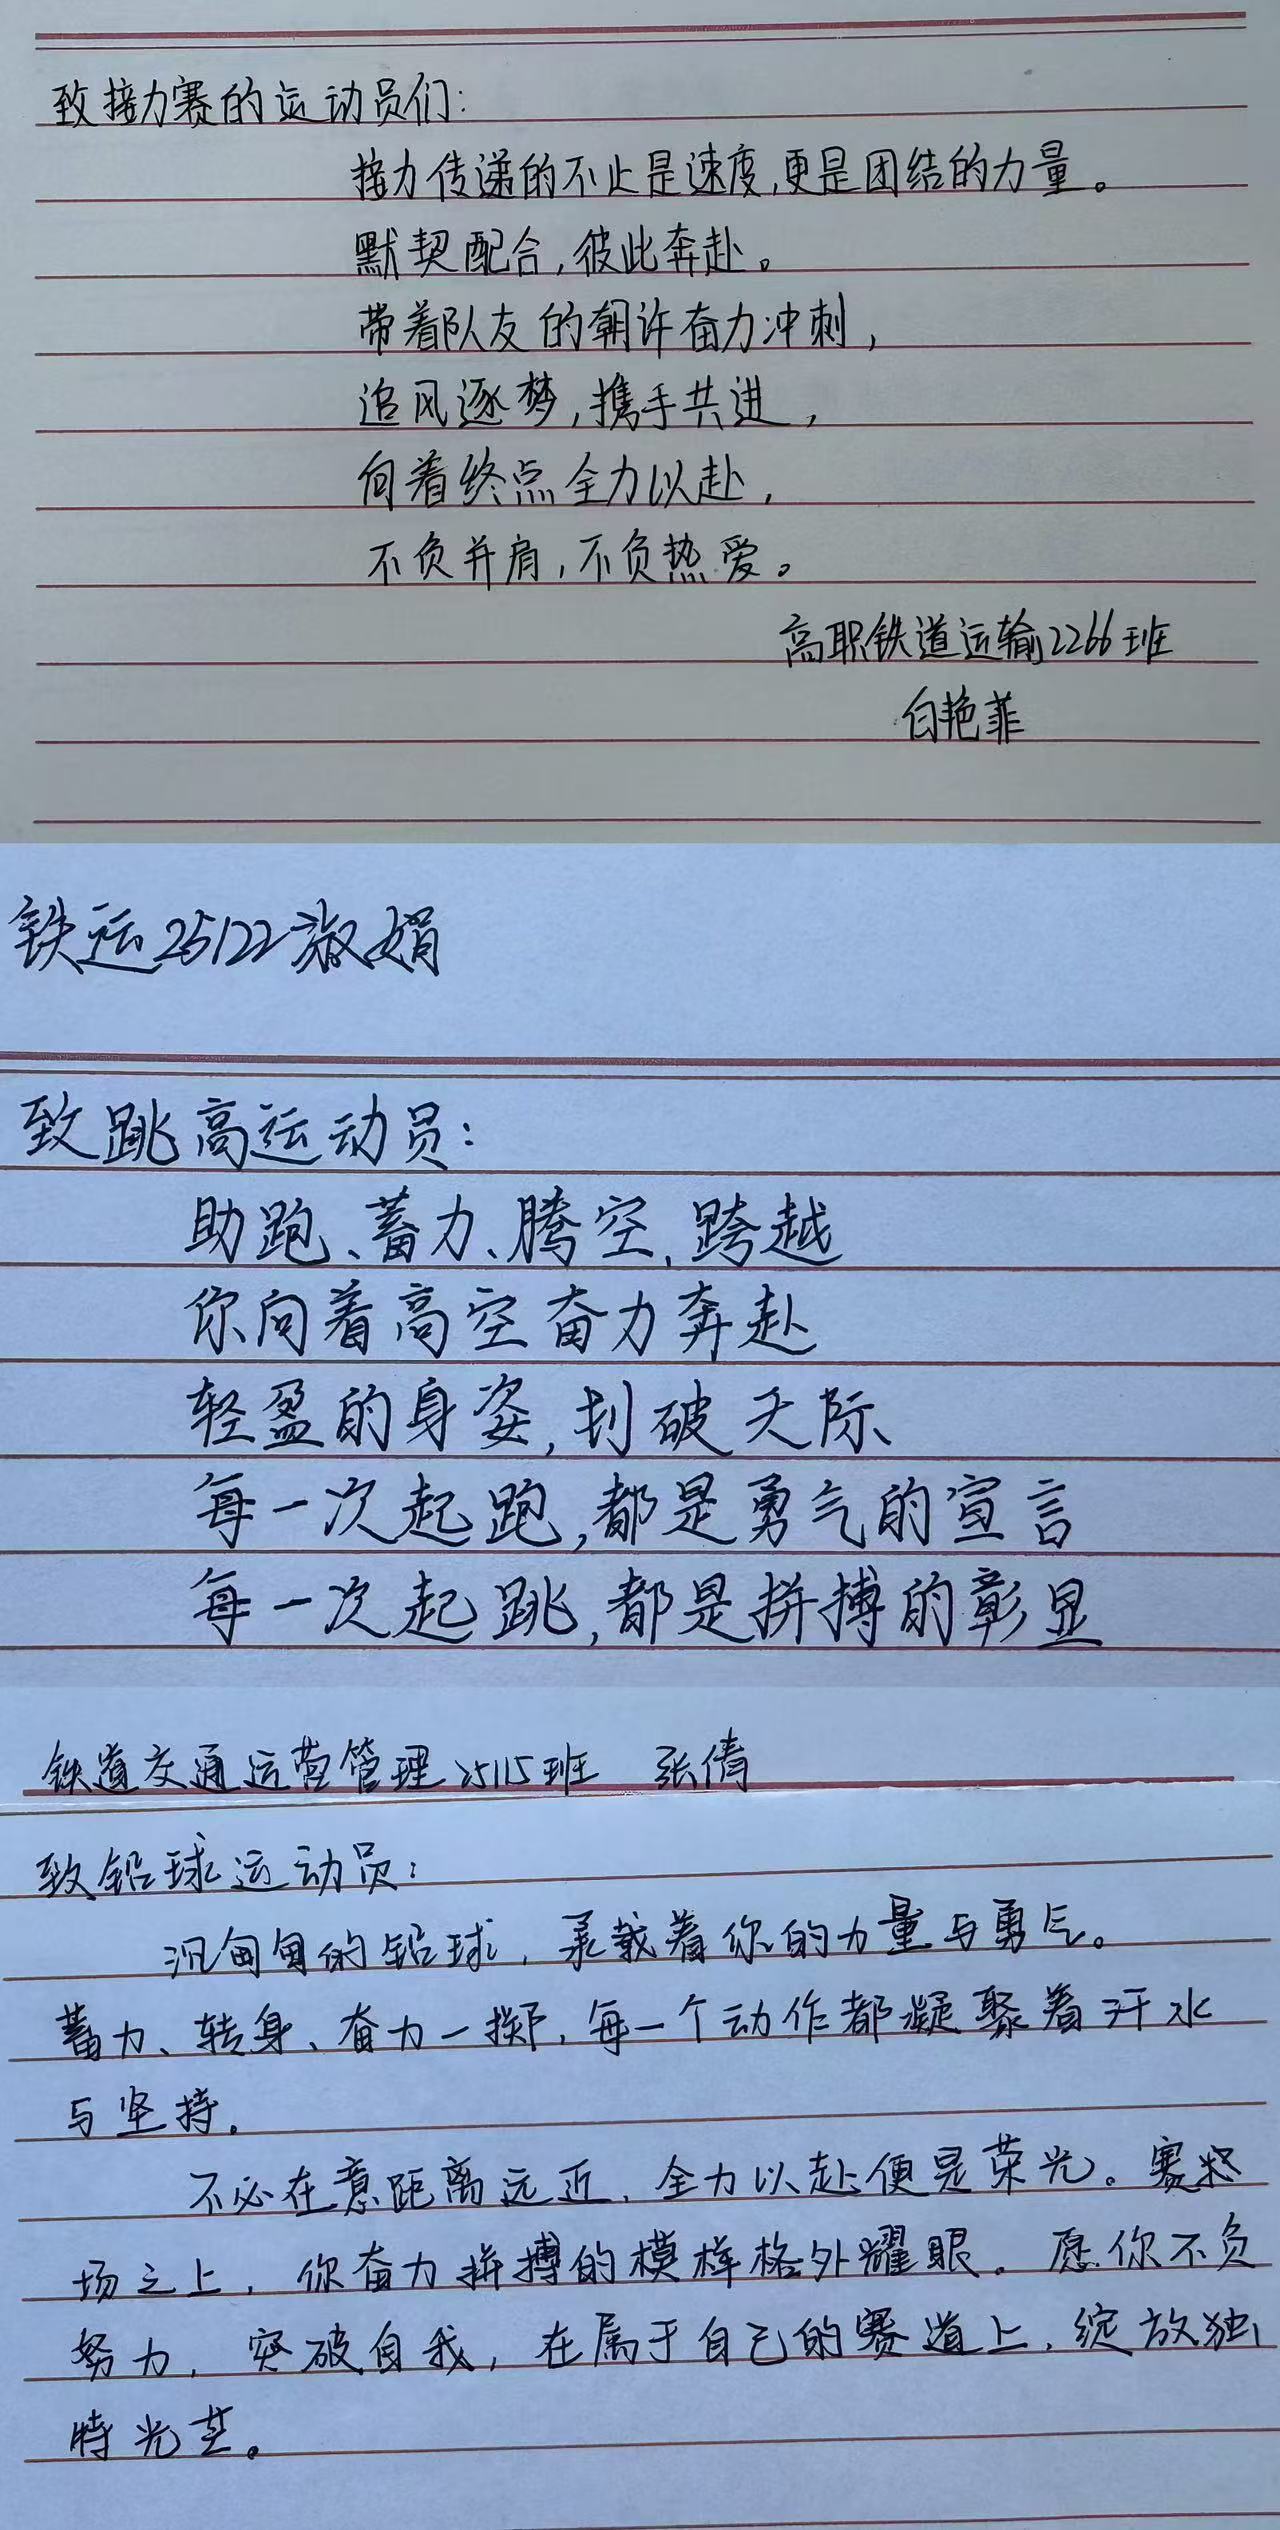 致接力赛的运动员们:
接力传递的不止是速度,更是团结的力量。
默契配合,彼此奔赴。
带着队友的期许奋力冲刺,
追风逐梦,携手共进,
向着终点全力以赴,
不负并肩,不负热爱。
高职铁道运输2266班
白艳菲
铁运25122淑娟
致跳高运动员:
助跑、蓄力、腾空,跨越
你向着高空奋力奔赴
轻盈的身姿,划破天际
每一次起跑,都是勇气的宣言
每一次起跳,都是拼搏的彰显
铁道交通运营管理25115班 张倩
致铅球运动员:
沉甸甸的铅球,承载着你的力量与勇气。
蓄力、转身、奋力一掷,每一个动作都凝聚着汗水
与坚持。
不必在意距离远近,全力以赴便是荣光。赛
场之上,你奋力拼搏的模样格外耀眼。愿你不负
努力,突破自我,在属于自己的赛道上,绽放独
特光芒。